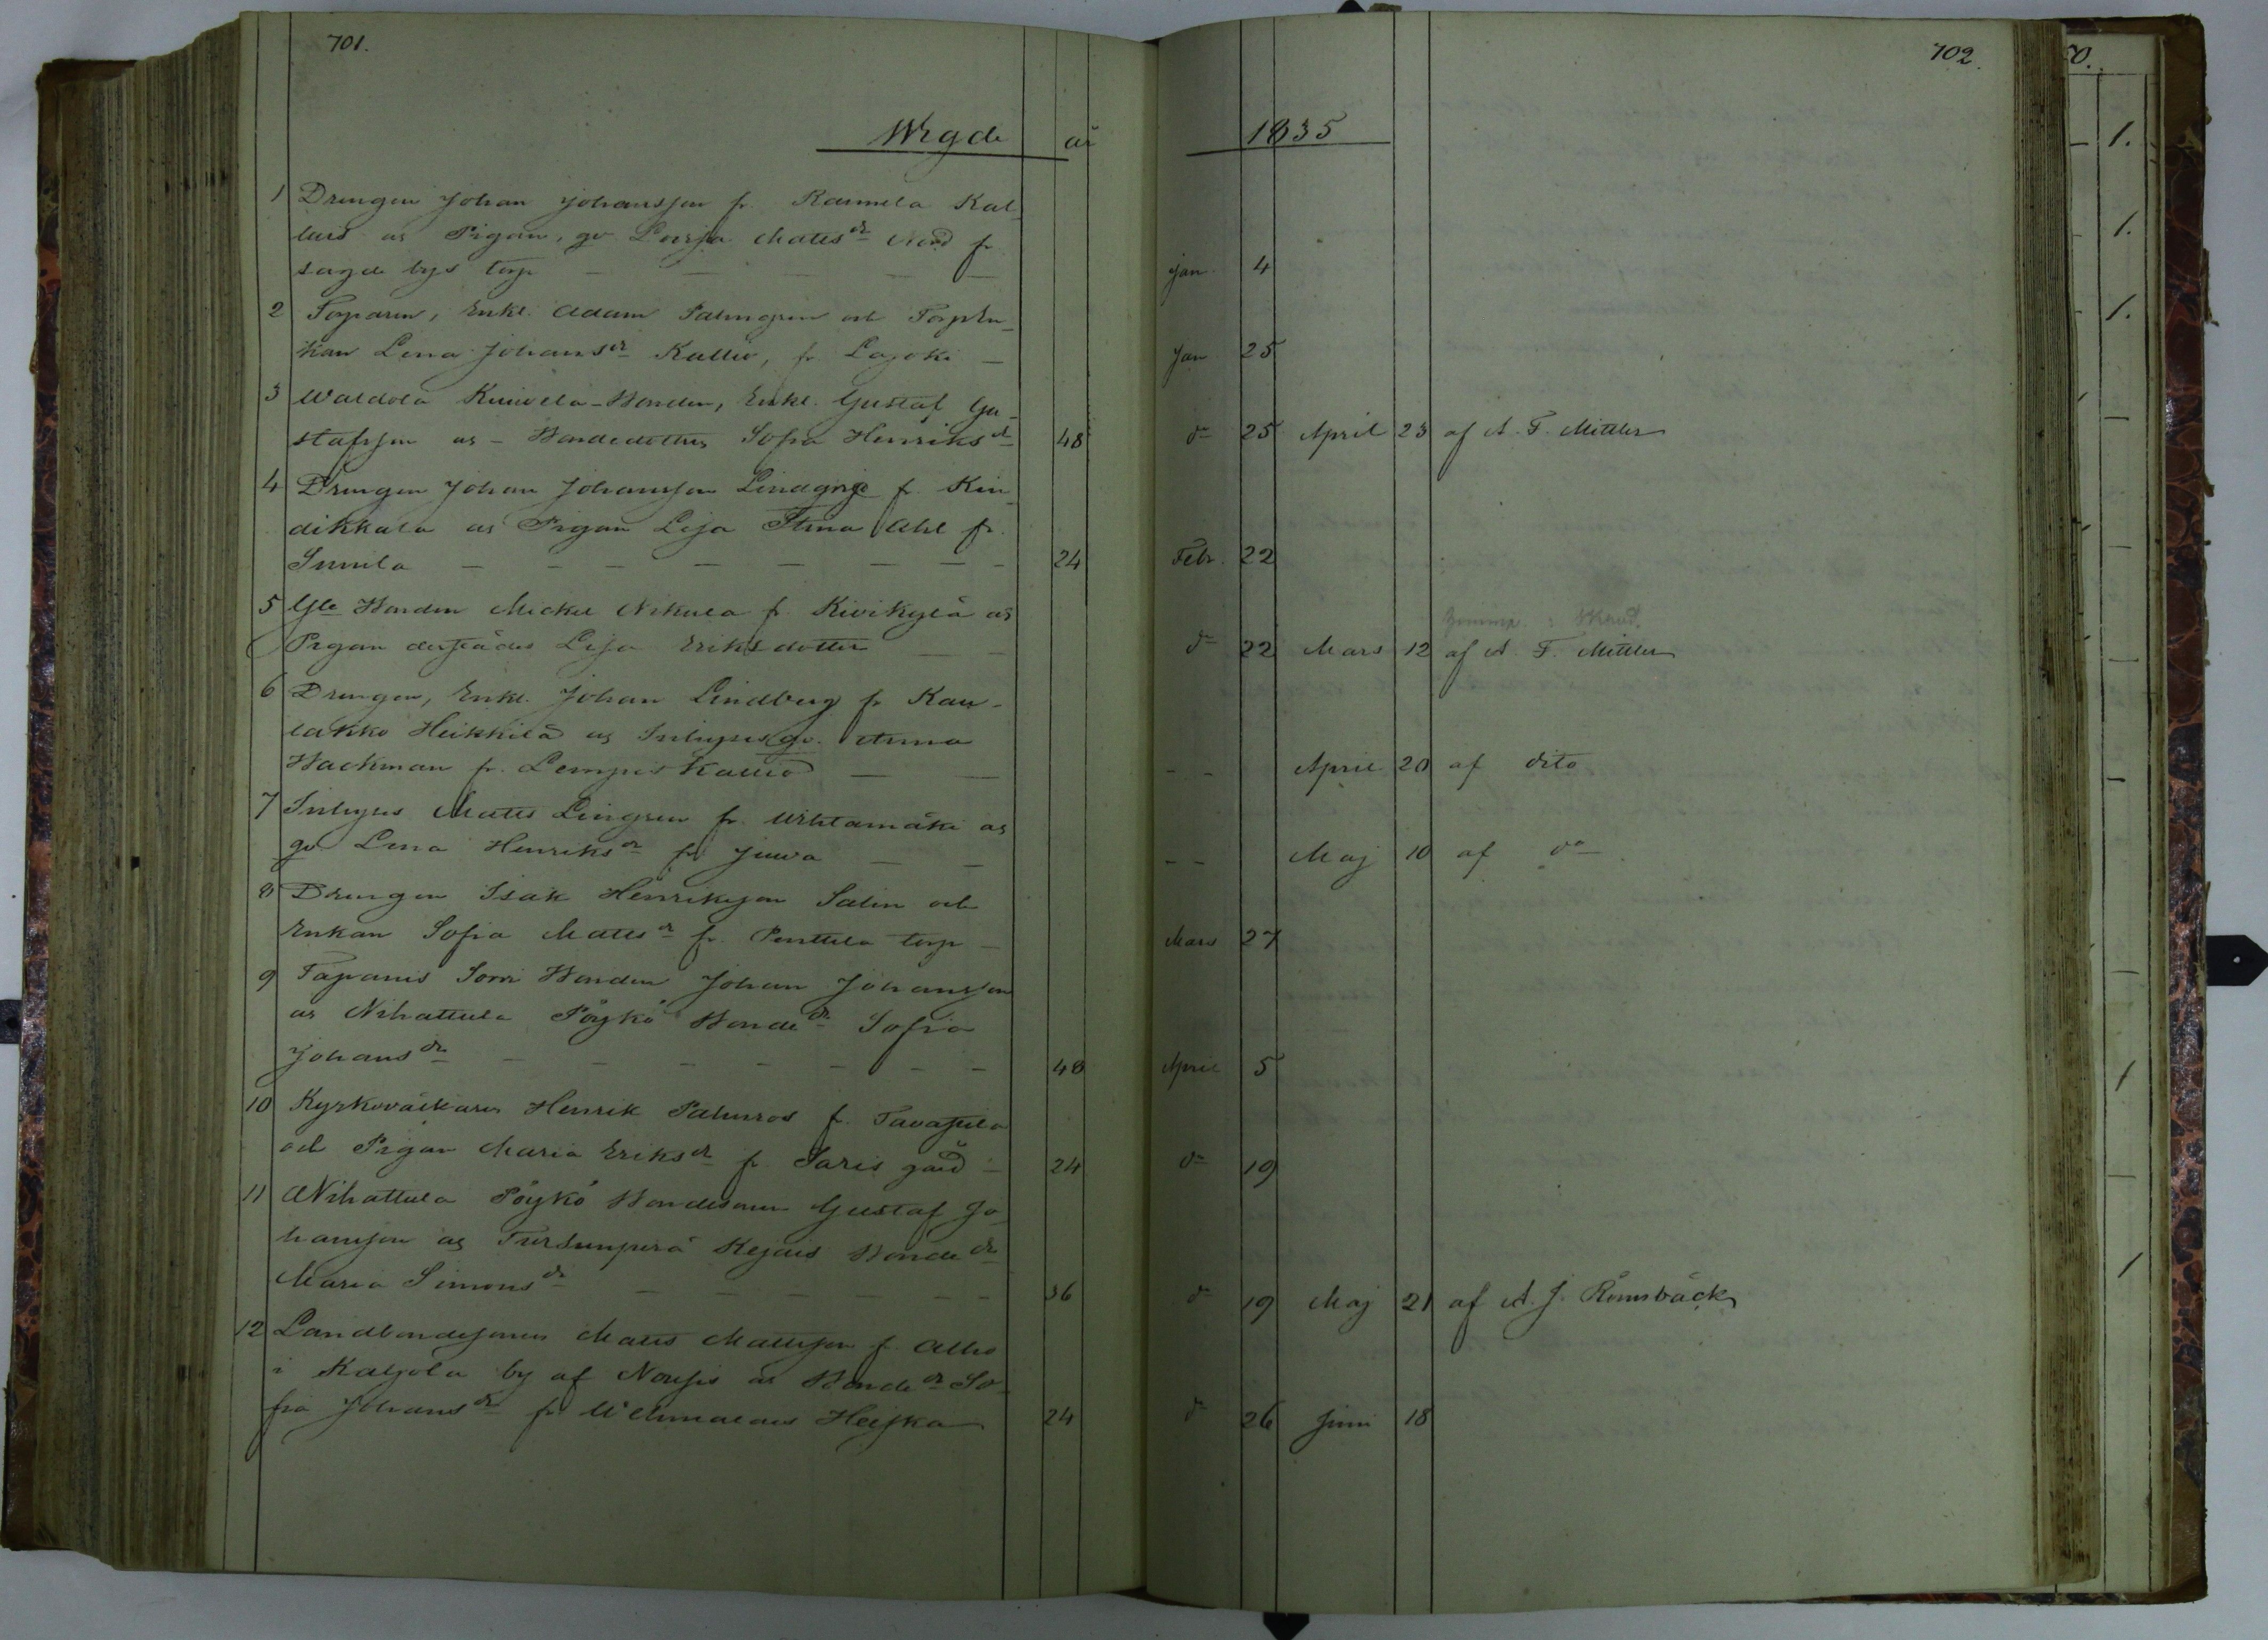 701.
702.
Wigde år 1835
1 Drengen Johan Johansson fr. Raumela Kal
luis o Pigan, qv Lovisa Mattsdr Nord fr
sagde bys torp — — — — Jan. 4
2 Torparen, Enkl. Adam Palmgren och Torpen
kan Lena Johansdr Kallio, fr Lajoki — Jan 25
3 Waldola Knivela-Bonden, Enkl. Gustaf Gu
stafsson o - Bondedottren Sofia Henriksdr 48 do 25 April 23 af A. F. Mittler
4 Drengen Johan Johansson Lindqvist fr. Kin
dikkala o Pigan Lisa Stina Ahl fr.
Sunila — — — — — — 24 Febr. 22
5 Gle Bonden Mickel Nikula fr. Kivikylä o
Pigan derstädes Lisa Eriksdotter — — do 22 Mars 12 af A. F. Mittler
6 Drengen, Enkl. Johan Lindberg fr Kau-
lakko Heikkilä o Inhyses qv. Anna
Hackman fr. Lempis Kallio — — - - April 20 af dito
7 Inhyses Matts Lingren fr. Wihtamäki o
qv Lena Henriksdr fr Juva — — - - Maj 10 af do
8 Drengen Isak Henriksson Salin och
Enkan Sofia Mattsdr fr. Penttila torp — Mars 27
9 Tapanis Sorri Bonden Johan Johansson
o Nihattula Pöykö Bondedr Sofia
Johansdr — — — — — — 48 April 5
10 Kyrkoväktaren Henrik Palmros fr. Tavastila
och Pigan Maria Eriksdr fr. Saris gård — 24 do 19
11 Nihattula Pöykö Bondesonen Gustaf Jo
hansson o Tursunperä Kejais Bondedr
Maria Simonsdr — — — — — — 36 do 19 Maj 21 af A. J. Rönnbäck
12 Landbondesonen Matts Mattsson fr Allio
i Kaljola by af Nousis o Bondedr So
fia Johansdr fr Wehmalais Heiska 24 do 26 Juni 18
1.
1.
1.
1
1